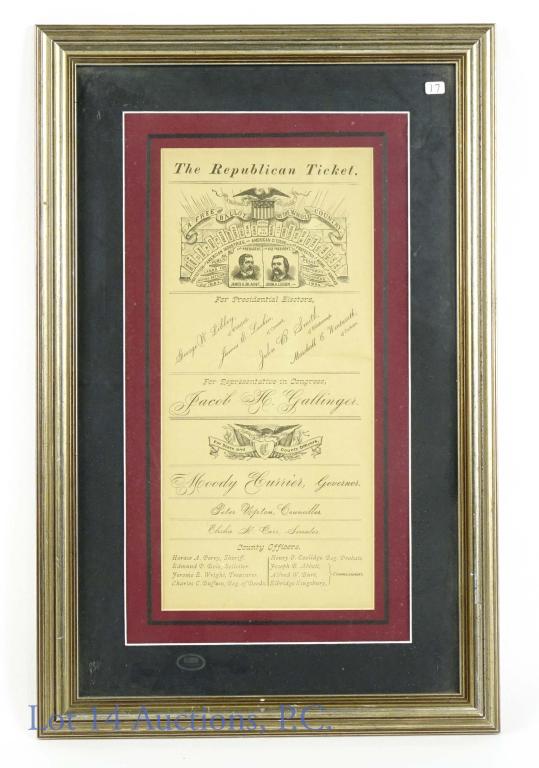 17
The Republican Ticket.
A FREE BALLOT
COUNTRY
AMERICAN
JAMES G. BLAINE.
JOHN A. LOGAN.
For Presidential Electors,
George W. Libbey,
James E. Larkin,
John B. Smith,
Marshall C. Wentworth,
For Representative in Congress,
Jacob H. Gallinger.
For State and County Officers.
Moody Currier, Governor.
Peter Upton, Councillor.
Carr, Senator.
County Officers.
Horace A. Perry, Sheriff.
Solicitor.
Jerome E. Wright, Treasurer.
Charles C. Buffum, Reg. of Deeds.
Henry O. Coolidge Reg. Probate.
Joseph B. Abbott,
Alfred W. Burt,
Elbridge Kingsbury,
Commissioners.
Lot 14 Auctions, P.C.